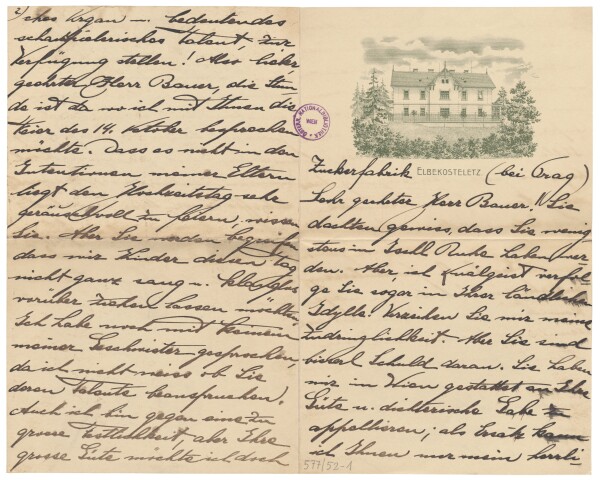 Zuckerfabrik ELBEKOSTELETZ (bei Prag)
Sehr geehrter Herr Bauer! Sie
dachten gewiss, dass Sie wenig
stens in Ischl Ruhe haben wer
den. Aber, ich Quälgeist verfol
ge Sie sogar in Ihrer ländlichen
Idylle. Verzeihen Sie mir meine
Zudringlichkeit. Aber Sie sind
bisserl Schuld daran. Sie haben
mir in Wien gestattet an Ihre
Güte u. dichterische Gabe zu
appellieren; als Ersatz kann
ich Ihnen nur mein herrli
577/52-1
2) ches Organ — bedeutendes
schauspielerisches Talent, zur
Verfügung stellen! Also lieber,
geehrter Herr Bauer, die Stun
de ist da wo ich mit Ihnen die
Feier des 14. Oktober besprechen
möchte. Dass es nicht in den
Intentionen meiner Eltern
liegt den Hochzeitstag sehr
geräuschvoll zu feiern, wissen
Sie. Aber Sie werden begreifen
dass wir Kinder diesen Tag
nicht ganz sang u. klanglos
vorüber ziehen lassen möchten.
Ich habe noch mit keinem
meiner Geschwister gesprochen,
da ich nicht weiss ob Sie
deren Talente beanspruchen.
Auch ich bin gegen eine zu
grosse Festlichkeit, aber Ihre
grosse Güte möchte ich doch
ÖSTERR. NATIONALBIBLIOTHEK
WIEN